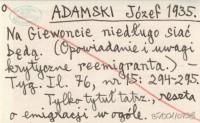 ADAMSKI Józef 1935.
Na Giewoncie niedługo siać
będą. (Opowiadanie i uwagi
krytyczne reemigranta.)
Tyg. Il. 76, nr 15: 294-295.
Tylko tytuł tatrz., reszta
o emigracji w ogóle.